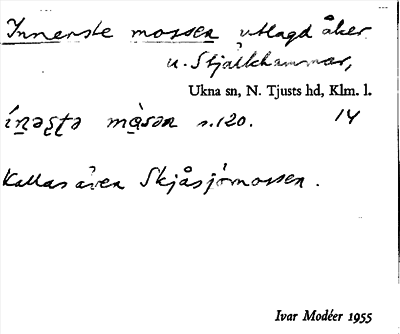 Innerste mossen utlagd åker
u. Stjälkhammar,
Ukna sn, N. Tjusts hd, Klm. l.
ı́n̥əʂʈə mɑ̀sən s. 120. 14
Kallas även Skjåsjömossen.
Ivar Modéer 1955